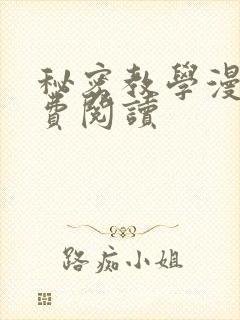 秘密教學漫
費閱讀
路痴小姐